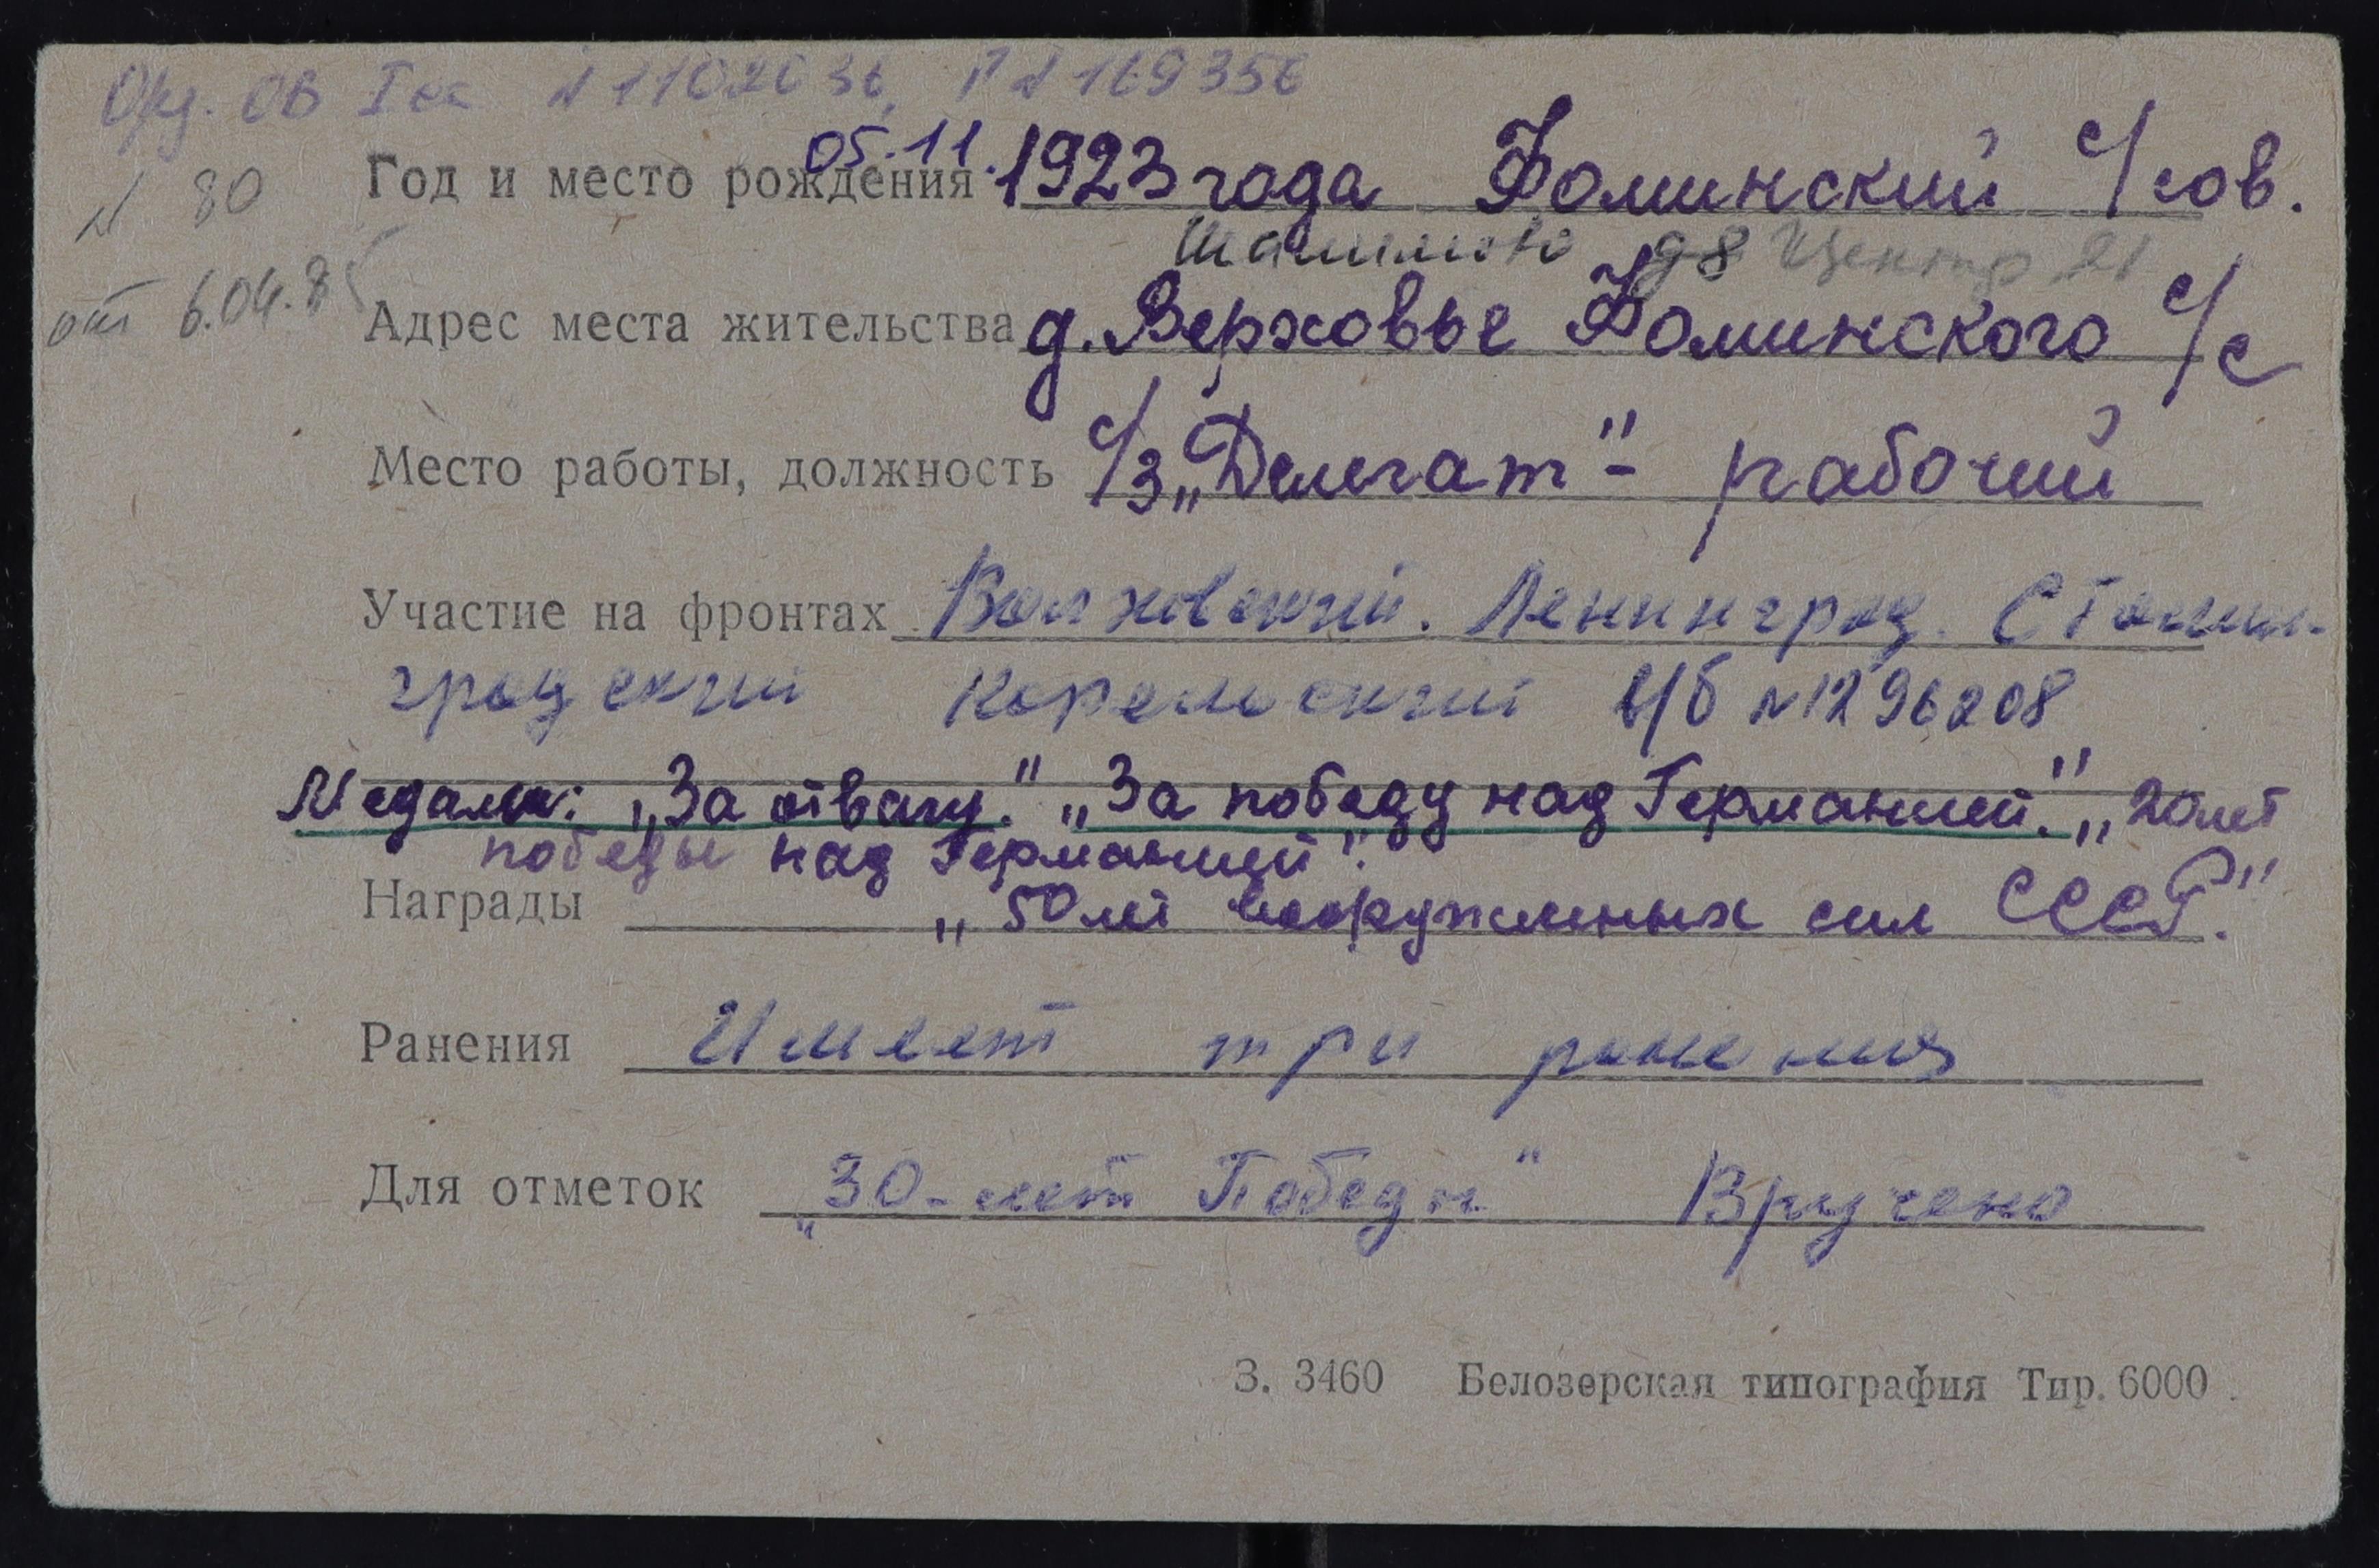 Орд. ОВ I ст N 1102036, Р N 169356
05.11.
N 80 Год и место рождения 1923 года Фоминский с/сов.
д 8 Центр 21
от 6.04.85 Адрес места жительства д. Верховье Фоминского с/с
Место работы, должность с/з „Делегат" - рабочий
Участие на фронтах Волховский. Ленинград. Сталин-
градский Карельский в/б N 1296208
Медали: „За отвагу." „За победу над Германией." „20 лет
победы над Германией".
Награды „50 лет вооруженных сил СССР."
Ранения Имеет три ранения
Для отметок „30-лет Победы" Вручено
З. 3460 Белозерская типография Тир. 6000